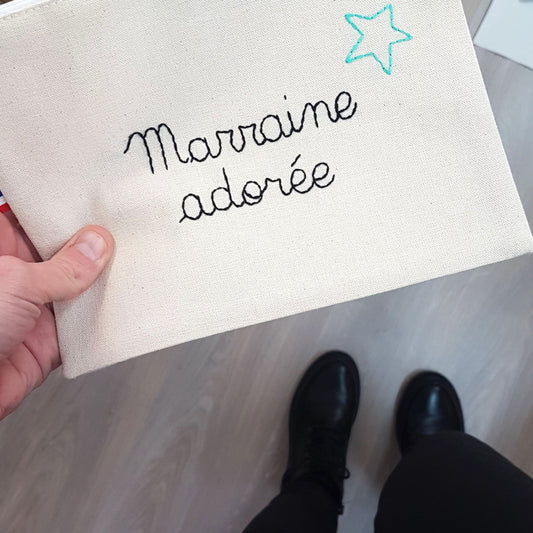 Marraine
adorée